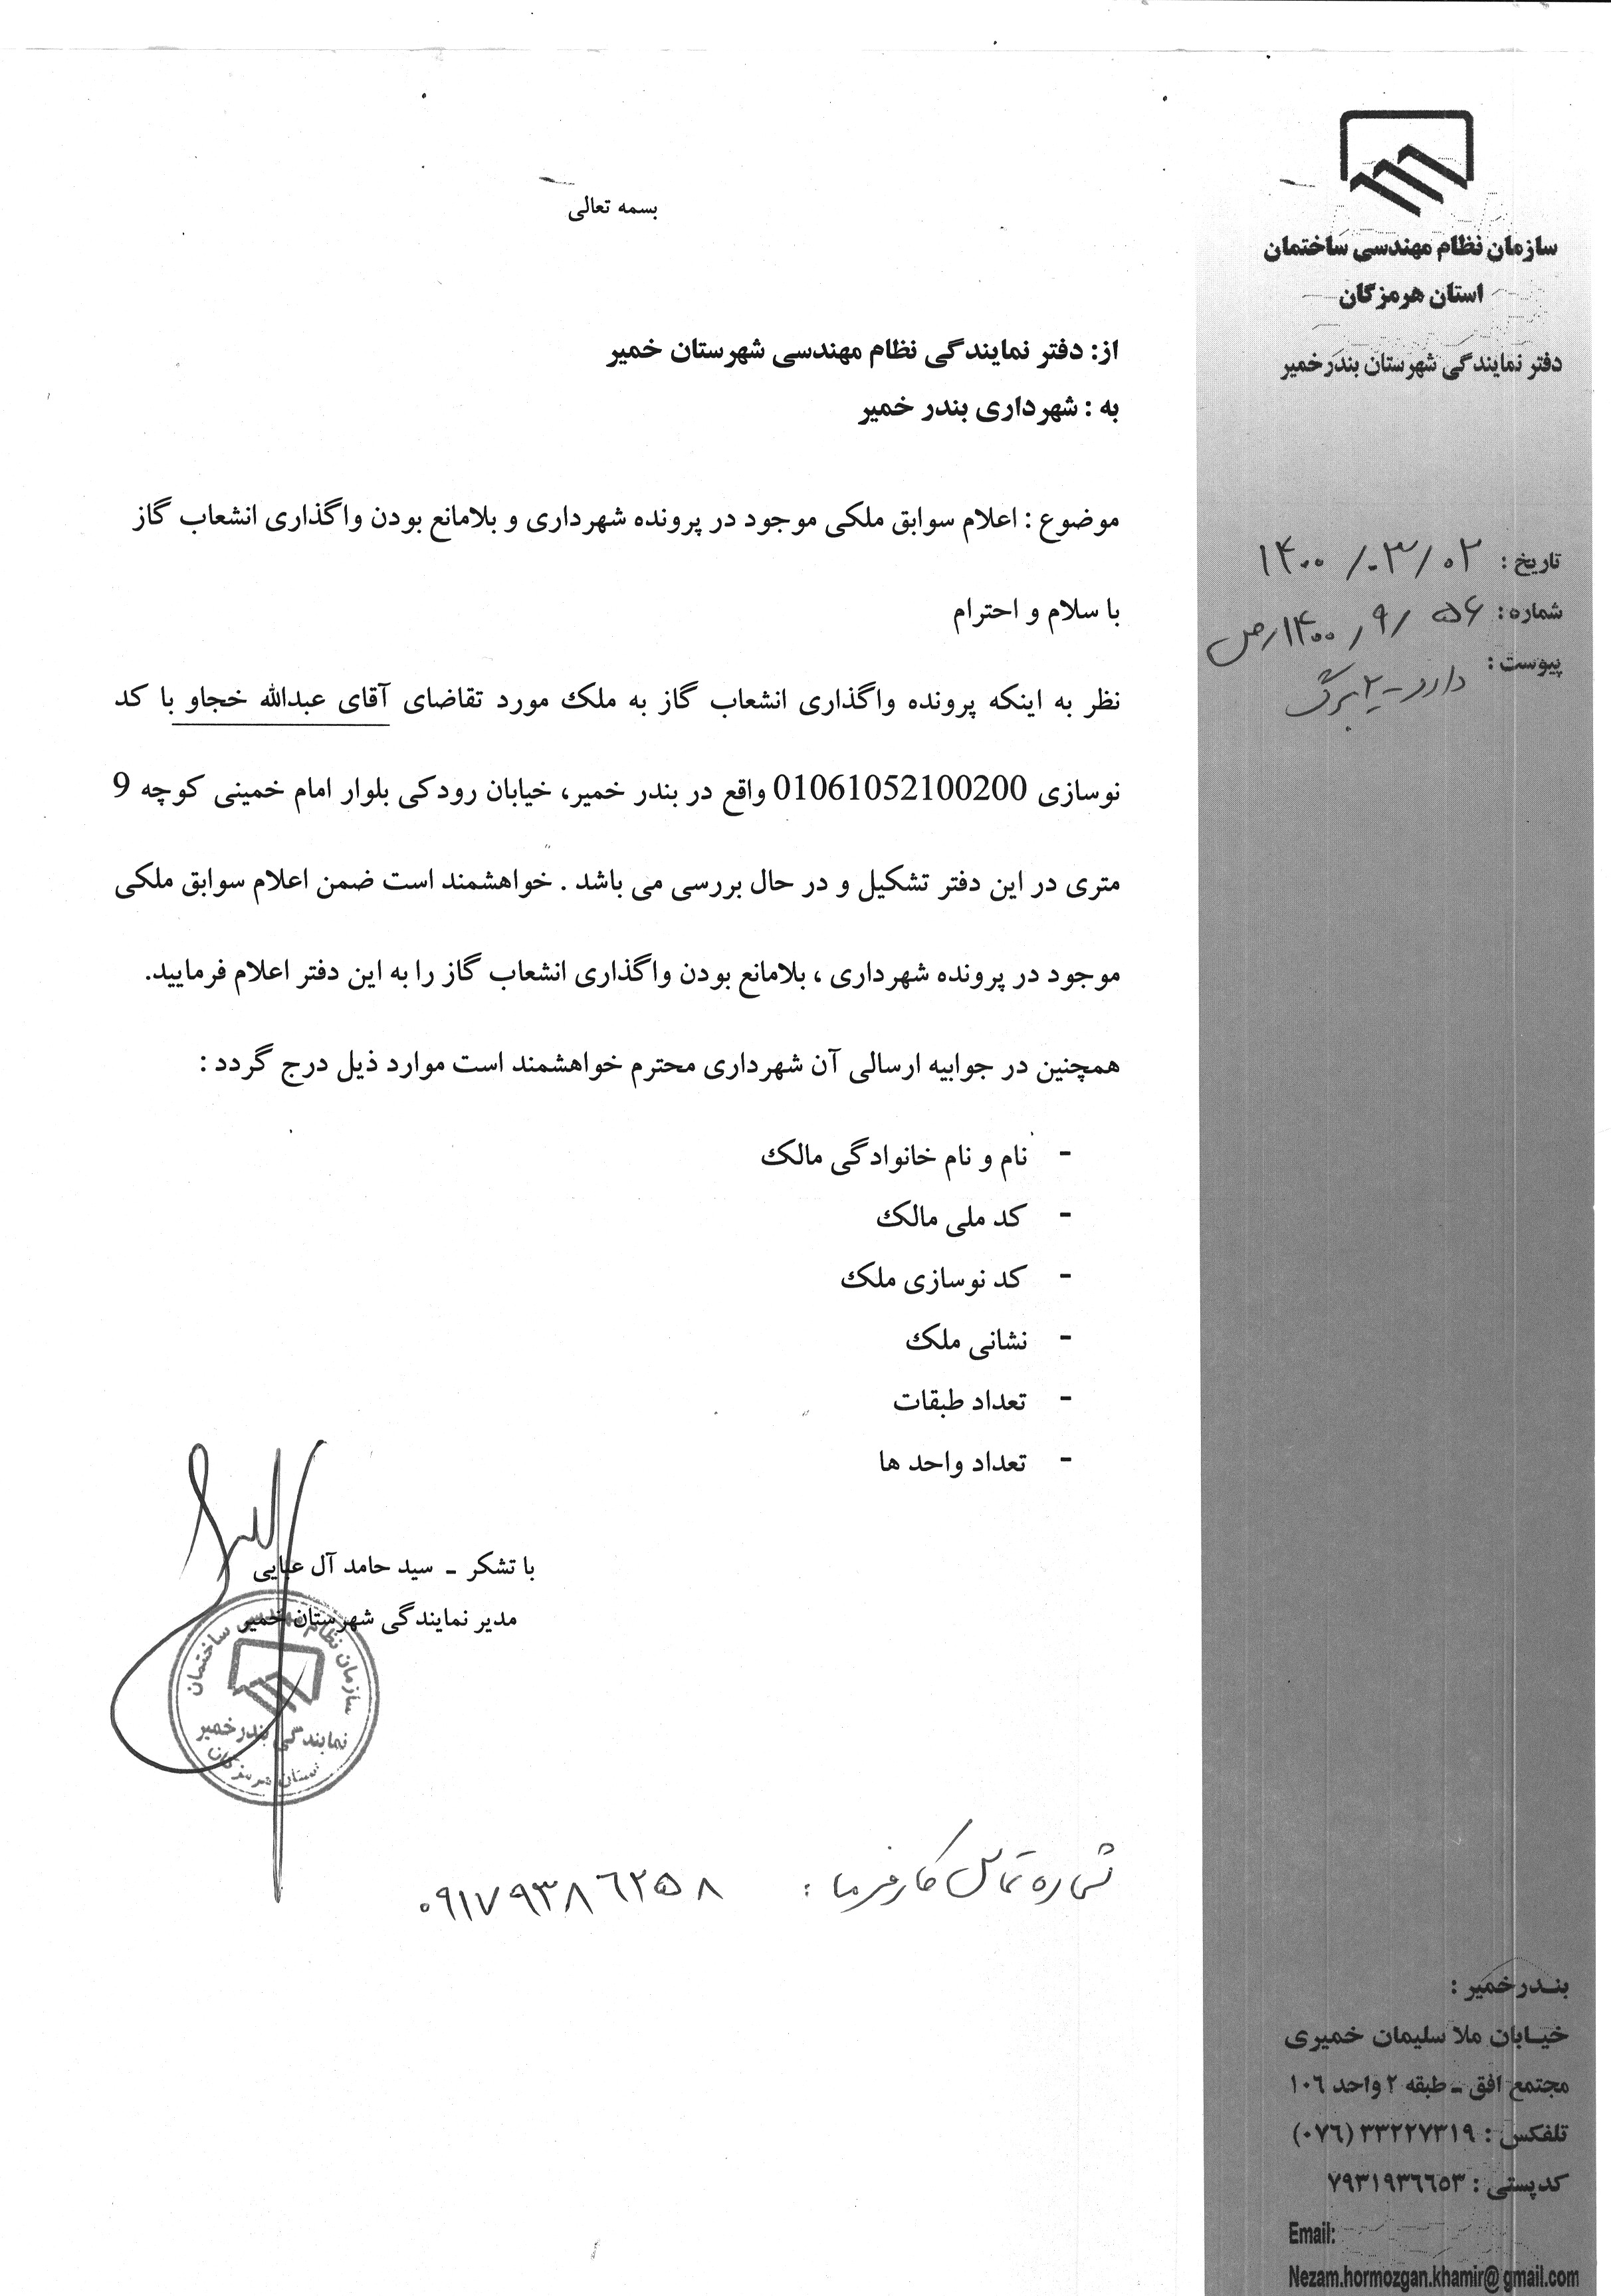 بسمه تعالی
سازمان نظام مهندسی ساختمان
استان هرمزگان
دفتر نمایندگی شهرستان بندرخمیر
تاریخ : ۱۴۰۰/۰۳/۰۲
شماره : ۵۶ /۹ /۱۴۰۰/ص
پیوست : دارد - ۲ برگ
از: دفتر نمایندگی نظام مهندسی شهرستان خمیر
به : شهرداری بندر خمیر
موضوع : اعلام سوابق ملکی موجود در پرونده شهرداری و بلامانع بودن واگذاری انشعاب گاز
با سلام و احترام
نظر به اینکه پرونده واگذاری انشعاب گاز به ملک مورد تقاضای آقای عبدالله خجاو با کد
نوسازی 01061052100200 واقع در بندر خمیر، خیابان رودکی بلوار امام خمینی کوچه 9
متری در این دفتر تشکیل و در حال بررسی می باشد . خواهشمند است ضمن اعلام سوابق ملکی
موجود در پرونده شهرداری ، بلامانع بودن واگذاری انشعاب گاز را به این دفتر اعلام فرمایید.
همچنین در جوابیه ارسالی آن شهرداری محترم خواهشمند است موارد ذیل درج گردد :
- نام و نام خانوادگی مالک
- کد ملی مالک
- کد نوسازی ملک
- نشانی ملک
- تعداد طبقات
- تعداد واحد ها
با تشکر ـ سید حامد آل عبایی
مدیر نمایندگی شهرستان خمیر
سازمان نظام مهندسی ساختمان
نمایندگی بندرخمیر
استان هرمزگان
شماره تماس کارفرما : ۰۹۱۷۹۳۸۶۲۵۸
بندرخمیر :
خیابان ملا سلیمان خمیری
مجتمع افق ـ طبقه ۲ واحد ۱۰۶
تلفکس : ۳۳۲۲۷۳۱۹ (۰۷۶)
کدپستی : ۷۹۳۱۹۳۶۶۵۳
Email:
Nezam.hormozgan.khamir@gmail.com